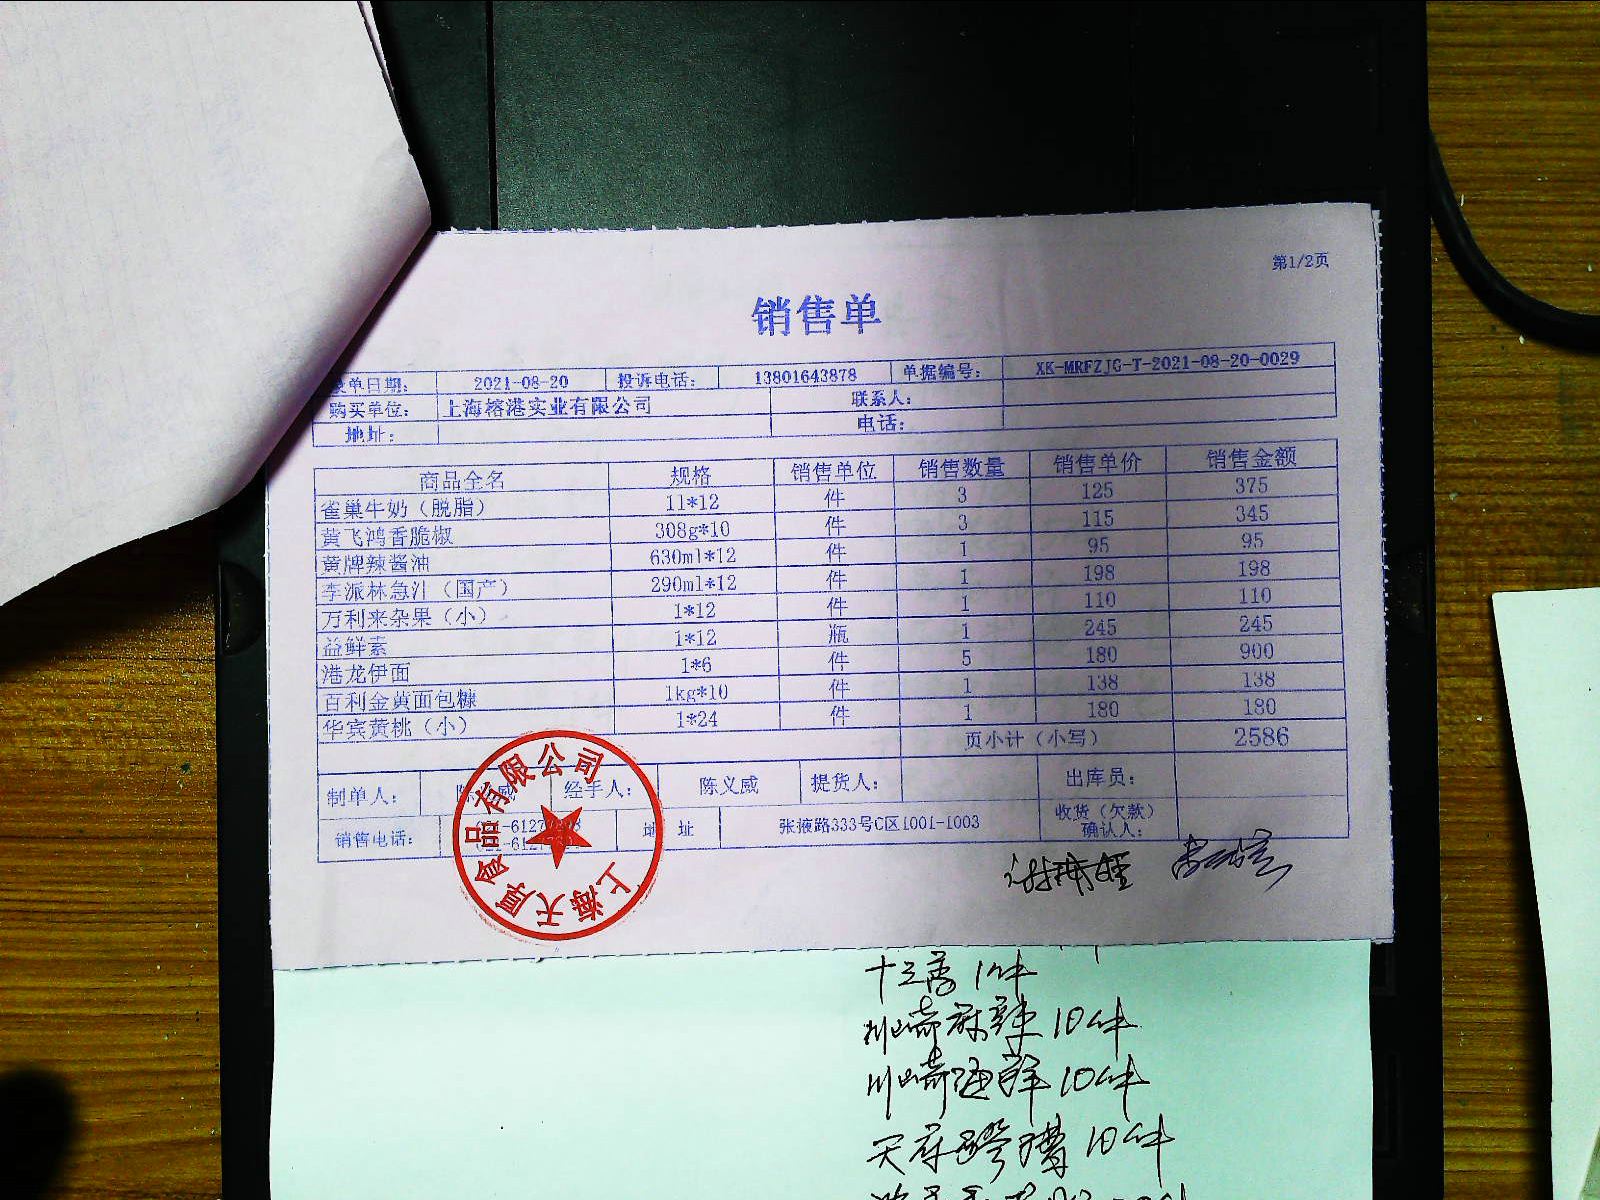 第1/2页
销售单
录单日期： 2021-08-20 投诉电话： 13801643878 单据编号： XK-MRFZJG-T-2021-08-20-0029
购买单位： 上海榕港实业有限公司 联系人：
地址： 电话：
商品全名 规格 销售单位 销售数量 销售单价 销售金额
雀巢牛奶（脱脂） 1l*12 件 3 125 375
黄飞鸿香脆椒 308g*10 件 3 115 345
黄牌辣酱油 630ml*12 件 1 95 95
李派林急汁（国产） 290ml*12 件 1 198 198
万利来杂果（小） 1*12 件 1 110 110
益鲜素 1*12 瓶 1 245 245
港龙伊面 1*6 件 5 180 900
百利金黄面包糠 1kg*10 件 1 138 138
华宾黄桃（小） 1*24 件 1 180 180
页小计（小写） 2586
制单人： 陈义威 经手人： 陈义威 提货人： 出库员：
销售电话： 地 址 张掖路333号C区1001-1003 收货（欠款）确认人：
上海天厚食品有限公司
十三香 1件
川崎麻辣 10件
川崎海鲜 10件
10件